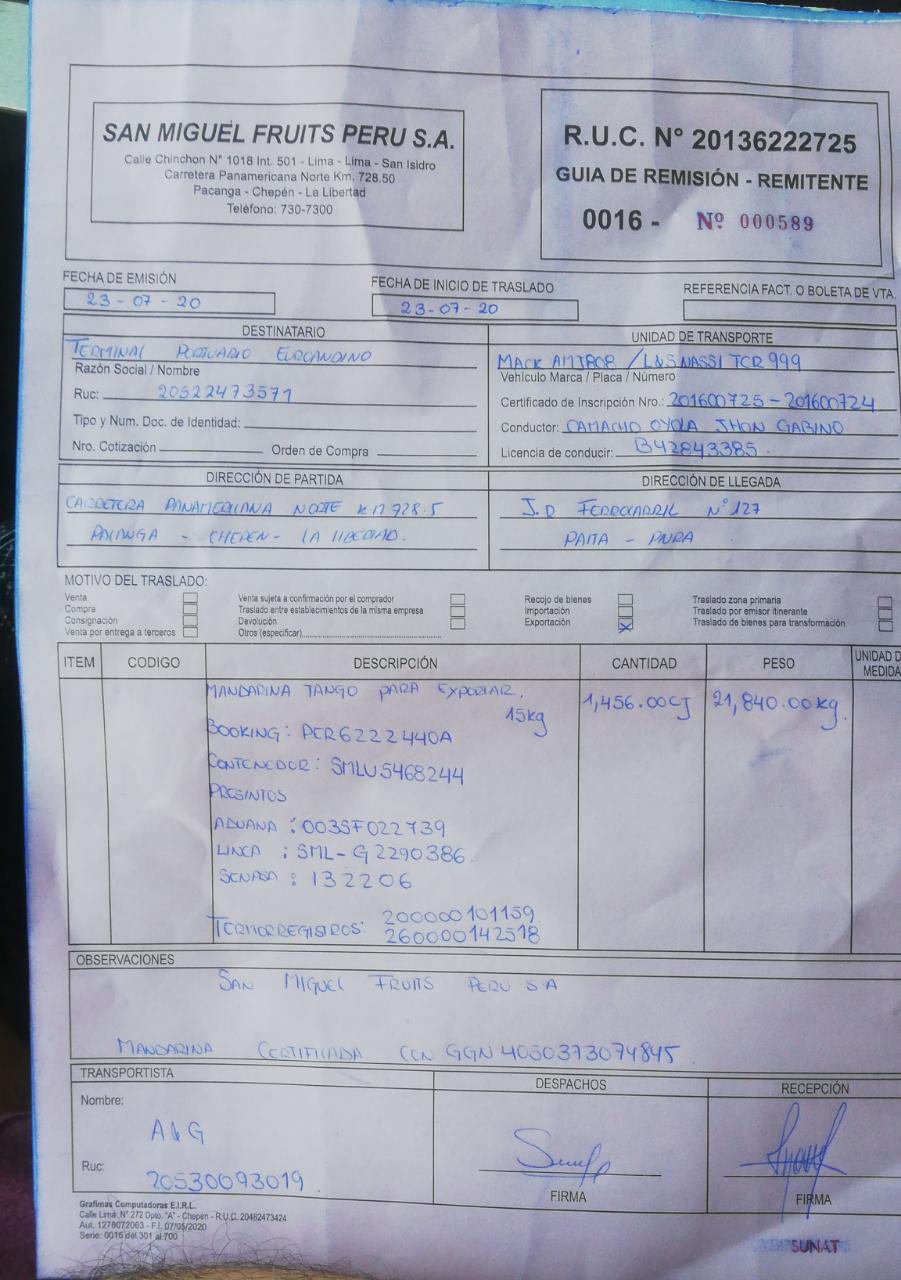 SAN MIGUEL FRUITS PERU S.A.
Calle Chinchon N° 1018 Int. 501 - Lima - Lima - San Isidro
Carretera Panamericana Norte Km. 728.50
Pacanga - Chepén - La Libertad
Teléfono: 730-7300
R.U.C. N° 20136222725
GUIA DE REMISIÓN - REMITENTE
0016 - Nº 000589
FECHA DE EMISIÓN
23-07-20
FECHA DE INICIO DE TRASLADO
23-07-20
REFERENCIA FACT. O BOLETA DE VTA.
DESTINATARIO
TERMINAL PORTUARIO EUROANDINO
Razón Social / Nombre
Ruc: 20522473571
Tipo y Num. Doc. de Identidad:
Nro. Cotización Orden de Compra
UNIDAD DE TRANSPORTE
MACK / TCR 999
Vehículo Marca / Placa / Número
Certificado de Inscripción Nro.: 201600725 - 201600724
Conductor: CAMACHO OYOLA JHON GABINO
Licencia de conducir: B42843385
DIRECCIÓN DE PARTIDA
CARRETERA PANAMERICANA NORTE KM 728.5
PACANGA - CHEPEN - LA LIBERTAD.
DIRECCIÓN DE LLEGADA
J.D FERROCARRIL N° 127
PAITA - PIURA
MOTIVO DEL TRASLADO:
Venta
Compra
Consignación
Venta por entrega a terceros
Venta sujeta a confirmación por el comprador
Traslado entre establecimientos de la misma empresa
Devolución
Otros (especificar)
Recojo de bienes
Importación
Exportación X
Traslado zona primaria
Traslado por emisor itinerante
Traslado de bienes para transformación
ITEM CODIGO DESCRIPCIÓN CANTIDAD PESO UNIDAD D
MEDIDA
MANDARINA TANGO PARA EXPORTAR. 1,456.00CJ 21,840.00kg.
15kg
BOOKING: PER6222440A
CONTENEDOR: SMLU5468244
PRESINTOS
ADUANA : 003SF022739
LINEA : SML-G2290386.
SENASA : 132206
TERMORREGISTROS: 200000101159
260000142518
OBSERVACIONES
SAN MIGUEL FRUITS PERU S.A
MANDARINA CERTIFICADA CON GGN 4050373074845
TRANSPORTISTA
Nombre:
A&G
Ruc: 20530093019
DESPACHOS
FIRMA
RECEPCIÓN
FIRMA
Grafimas Computadoras E.I.R.L.
Calle Lima N° 272 Dpto. "A" - Chepen - R.U.C. 20482473424
Aut. 1278072063 - F.I. 07/05/2020
Serie: 0016 del 301 al 700
SUNAT